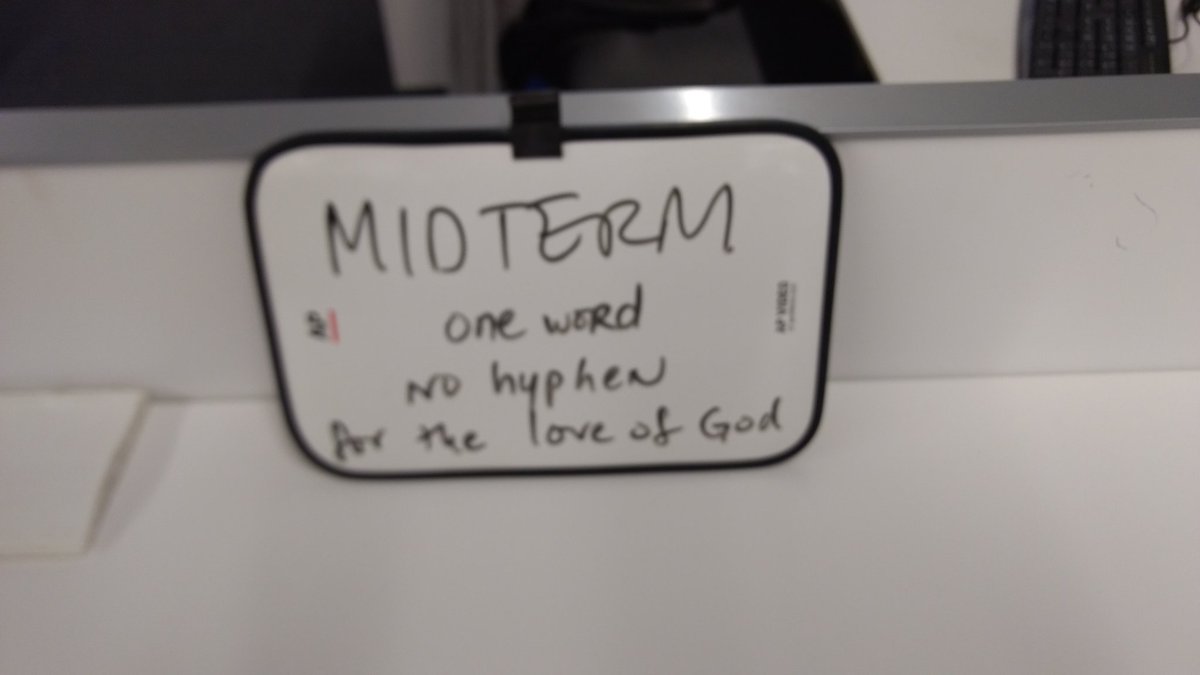 MIDTERM
one word
no hyphen
for the love of God
AP
AP VIDEO